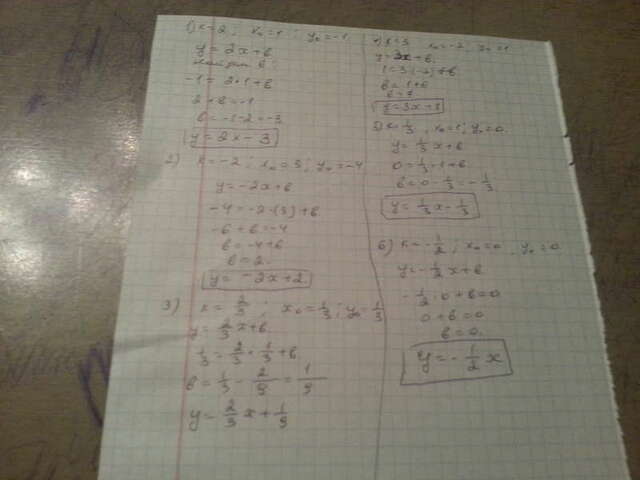 1) k = 2 ; x₀ = 1 ; y₀ = -1
y = 2x + b
найти b:
-1 = 2·1 + b
2 + b = -1
b = -1 - 2 = -3
y = 2x - 3
2) k = -2 ; x₀ = 3 ; y₀ = -4
y = -2x + b
-4 = -2·(3) + b
-6 + b = -4
b = -4 + 6
b = 2
y = -2x + 2
3) k = 2/3 ; x₀ = 1/3 ; y₀ = 1/3
y = 2/3 x + b
1/3 = 2/3 · 1/3 + b
b = 1/3 - 2/9 = 1/9
y = 2/3 x + 1/9
4) k = 3 x₀ = -2, y₀ = 1
y = 3x + b
1 = 3·(-2) + b
b = 1 + 6
b = 7
y = 3x + 7
5) k = 1/3, x₀ = 1; y₀ = 0
y = 1/3 x + b
0 = 1/3 · 1 + b
b = 0 - 1/3 = -1/3
y = 1/3 x - 1/3
6) k = -1/2 ; x₀ = 0, y₀ = 0
y = -1/2 x + b
-1/2 · 0 + b = 0
0 + b = 0
b = 0
y = -1/2 x